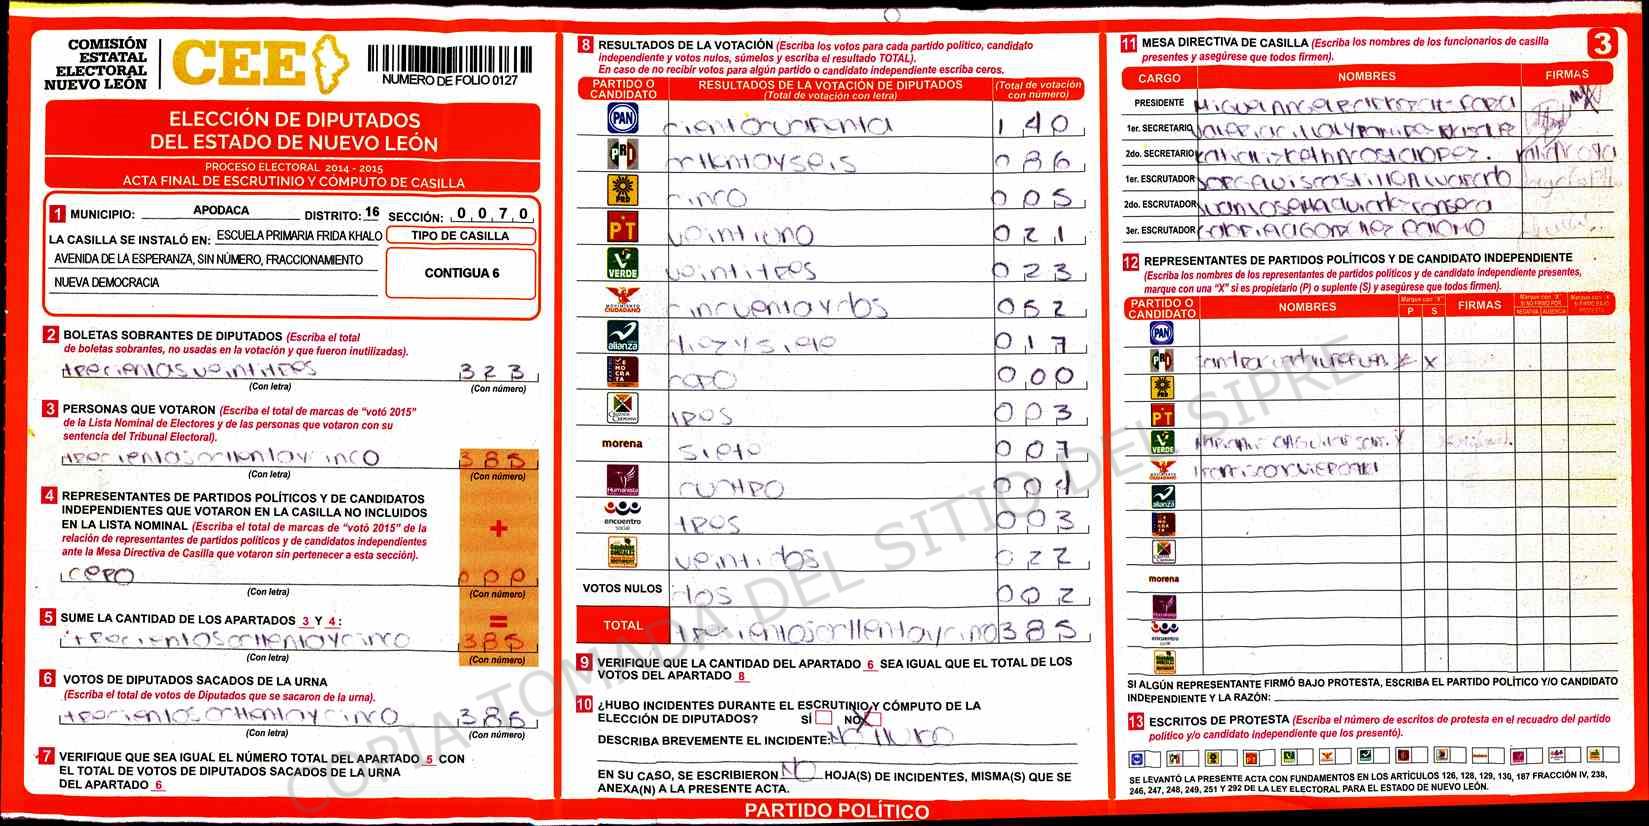 COMISIÓN
ESTATAL
ELECTORAL
NUEVO LEÓN
CEE
NUMERO DE FOLIO 0127
ELECCIÓN DE DIPUTADOS
DEL ESTADO DE NUEVO LEÓN
PROCESO ELECTORAL 2014 - 2015
ACTA FINAL DE ESCRUTINIO Y CÓMPUTO DE CASILLA
1 MUNICIPIO: APODACA DISTRITO: 16 SECCIÓN: 0 0 7 0
LA CASILLA SE INSTALÓ EN: ESCUELA PRIMARIA FRIDA KHALO
AVENIDA DE LA ESPERANZA, SIN NÚMERO, FRACCIONAMIENTO
NUEVA DEMOCRACIA
TIPO DE CASILLA
CONTIGUA 6
2 BOLETAS SOBRANTES DE DIPUTADOS (Escriba el total
de boletas sobrantes, no usadas en la votación y que fueron inutilizadas).
trecientas veintitres 323
(Con letra) (Con número)
3 PERSONAS QUE VOTARON (Escriba el total de marcas de “votó 2015”
de la Lista Nominal de Electores y de las personas que votaron con su
sentencia del Tribunal Electoral).
385
(Con letra) (Con número)
4 REPRESENTANTES DE PARTIDOS POLÍTICOS Y DE CANDIDATOS
INDEPENDIENTES QUE VOTARON EN LA CASILLA NO INCLUIDOS
EN LA LISTA NOMINAL (Escriba el total de marcas de “votó 2015” de la
relación de representantes de partidos políticos y de candidatos independientes
ante la Mesa Directiva de Casilla que votaron sin pertenecer a esta sección).
+
cero 000
(Con letra) (Con número)
5 SUME LA CANTIDAD DE LOS APARTADOS 3 Y 4 :
=
385
(Con letra) (Con número)
6 VOTOS DE DIPUTADOS SACADOS DE LA URNA
(Escriba el total de votos de Diputados que se sacaron de la urna).
385
(Con letra) (Con número)
7 VERIFIQUE QUE SEA IGUAL EL NÚMERO TOTAL DEL APARTADO 5 CON
EL TOTAL DE VOTOS DE DIPUTADOS SACADOS DE LA URNA
DEL APARTADO 6
8 RESULTADOS DE LA VOTACIÓN (Escriba los votos para cada partido político, candidato
independiente y votos nulos, súmelos y escriba el resultado TOTAL).
En caso de no recibir votos para algún partido o candidato independiente escriba ceros.
PARTIDO O CANDIDATO
RESULTADOS DE LA VOTACIÓN DE DIPUTADOS
(Total de votación con letra)
(Total de votación con número)
PAN cientocuarenta 140
PRI ochentayseis 086
PRD cinco 005
PT veintiuno 021
VERDE veintitres 023
MOVIMIENTO CIUDADANO cincuentaydos 052
alianza diezysiete 017
cero 000
tres 003
morena siete 007
Humanista cuatro 004
encuentro social tres 003
veintidos 022
VOTOS NULOS dos 002
TOTAL 385
9 VERIFIQUE QUE LA CANTIDAD DEL APARTADO 6 SEA IGUAL QUE EL TOTAL DE LOS
VOTOS DEL APARTADO 8
10 ¿HUBO INCIDENTES DURANTE EL ESCRUTINIO Y CÓMPUTO DE LA
ELECCIÓN DE DIPUTADOS? SÍ NO X
DESCRIBA BREVEMENTE EL INCIDENTE: No Hubo
EN SU CASO, SE ESCRIBIERON NO HOJA(S) DE INCIDENTES, MISMA(S) QUE SE
ANEXA(N) A LA PRESENTE ACTA.
PARTIDO POLÍTICO
3
11 MESA DIRECTIVA DE CASILLA (Escriba los nombres de los funcionarios de casilla
presentes y asegúrese que todos firmen).
CARGO NOMBRES FIRMAS
PRESIDENTE
1er. SECRETARIO
2do. SECRETARIO
1er. ESCRUTADOR
2do. ESCRUTADOR
3er. ESCRUTADOR
12 REPRESENTANTES DE PARTIDOS POLÍTICOS Y DE CANDIDATO INDEPENDIENTE
(Escriba los nombres de los representantes de partidos políticos y de candidato independiente presentes,
marque con una “X” si es propietario (P) o suplente (S) y asegúrese que todos firmen).
PARTIDO O CANDIDATO NOMBRES P S FIRMAS
PAN
PRI X
PRD
PT
VERDE
alianza
morena
SI ALGÚN REPRESENTANTE FIRMÓ BAJO PROTESTA, ESCRIBA EL PARTIDO POLÍTICO Y/O CANDIDATO
INDEPENDIENTE Y LA RAZÓN:
13 ESCRITOS DE PROTESTA (Escriba el número de escritos de protesta en el recuadro del partido
político y/o candidato independiente que los presentó).
SE LEVANTÓ LA PRESENTE ACTA CON FUNDAMENTOS EN LOS ARTÍCULOS 126, 128, 129, 130, 187 FRACCIÓN IV, 238,
246, 247, 248, 249, 251 Y 292 DE LA LEY ELECTORAL PARA EL ESTADO DE NUEVO LEÓN.
COPIA TOMADA DEL SITIO DEL SIPRE